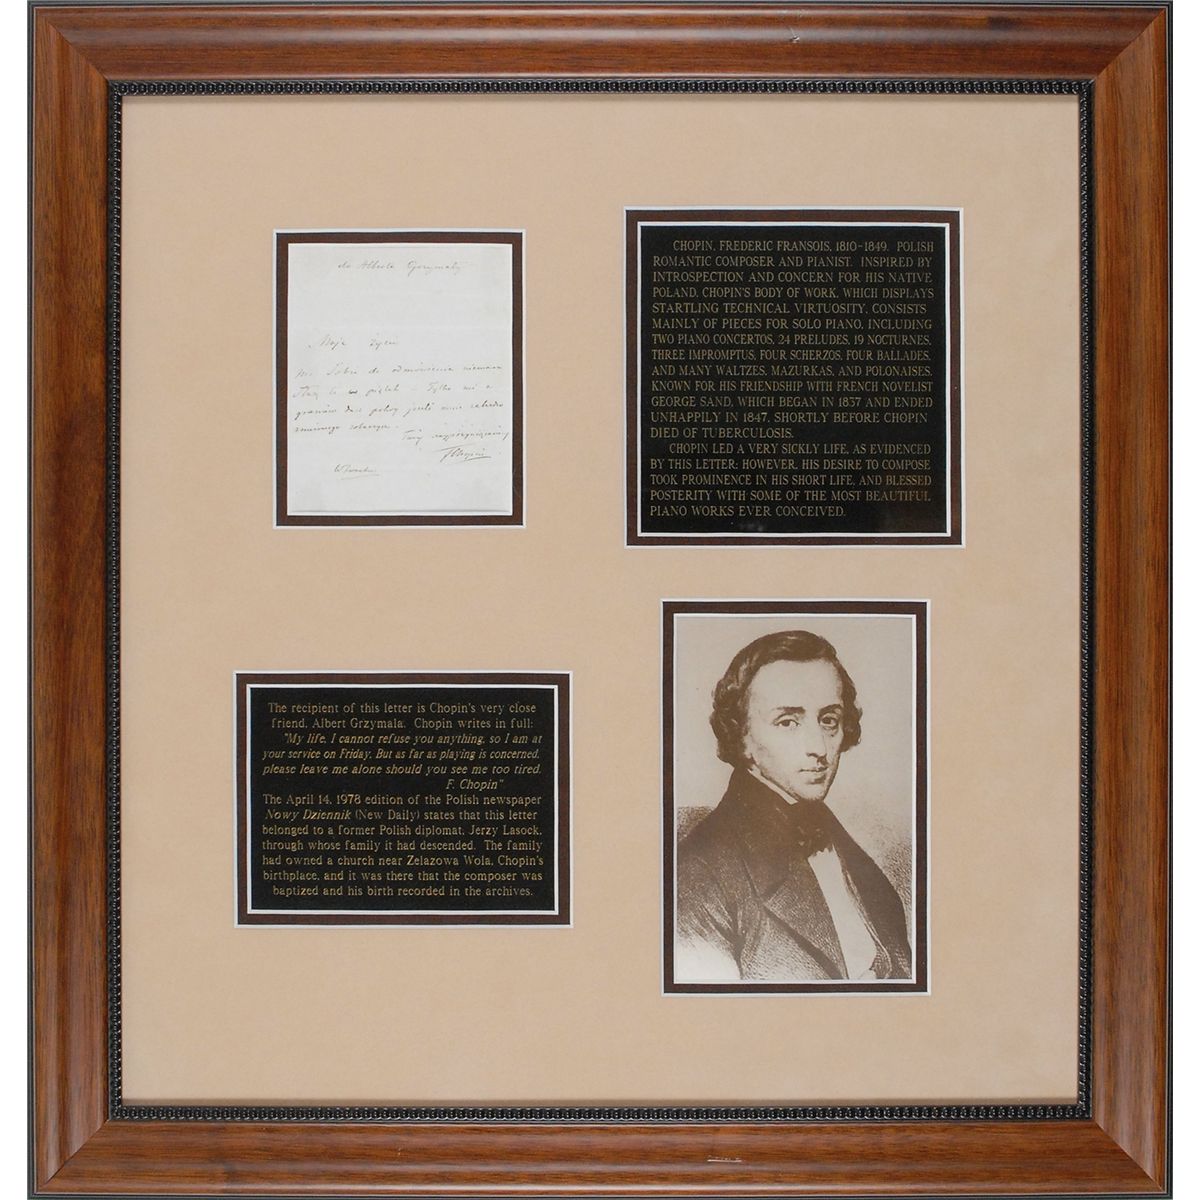 do Alberta Grzymały
Moje Życie
Tobie do odmówienia niemam
w piątek – Tylko
FChopin
CHOPIN, FREDERIC FRANSOIS, 1810-1849. POLISH
ROMANTIC COMPOSER AND PIANIST. INSPIRED BY
INTROSPECTION AND CONCERN FOR HIS NATIVE
POLAND, CHOPIN'S BODY OF WORK, WHICH DISPLAYS
STARTLING TECHNICAL VIRTUOSITY, CONSISTS
MAINLY OF PIECES FOR SOLO PIANO, INCLUDING
TWO PIANO CONCERTOS, 24 PRELUDES, 19 NOCTURNES,
THREE IMPROMPTUS, FOUR SCHERZOS, FOUR BALLADES,
AND MANY WALTZES, MAZURKAS, AND POLONAISES.
KNOWN FOR HIS FRIENDSHIP WITH FRENCH NOVELIST
GEORGE SAND, WHICH BEGAN IN 1837 AND ENDED
UNHAPPILY IN 1847, SHORTLY BEFORE CHOPIN
DIED OF TUBERCULOSIS.
CHOPIN LED A VERY SICKLY LIFE, AS EVIDENCED
BY THIS LETTER; HOWEVER, HIS DESIRE TO COMPOSE
TOOK PROMINENCE IN HIS SHORT LIFE, AND BLESSED
POSTERITY WITH SOME OF THE MOST BEAUTIFUL
PIANO WORKS EVER CONCEIVED.
The recipient of this letter is Chopin's very close
friend, Albert Grzymala. Chopin writes in full:
"My life, I cannot refuse you anything, so I am at
your service on Friday. But as far as playing is concerned,
please leave me alone should you see me too tired.
F. Chopin"
The April 14, 1978 edition of the Polish newspaper
Nowy Dziennik (New Daily) states that this letter
belonged to a former Polish diplomat, Jerzy Lasock,
through whose family it had descended. The family
had owned a church near Zelazowa Wola, Chopin's
birthplace, and it was there that the composer was
baptized and his birth recorded in the archives.